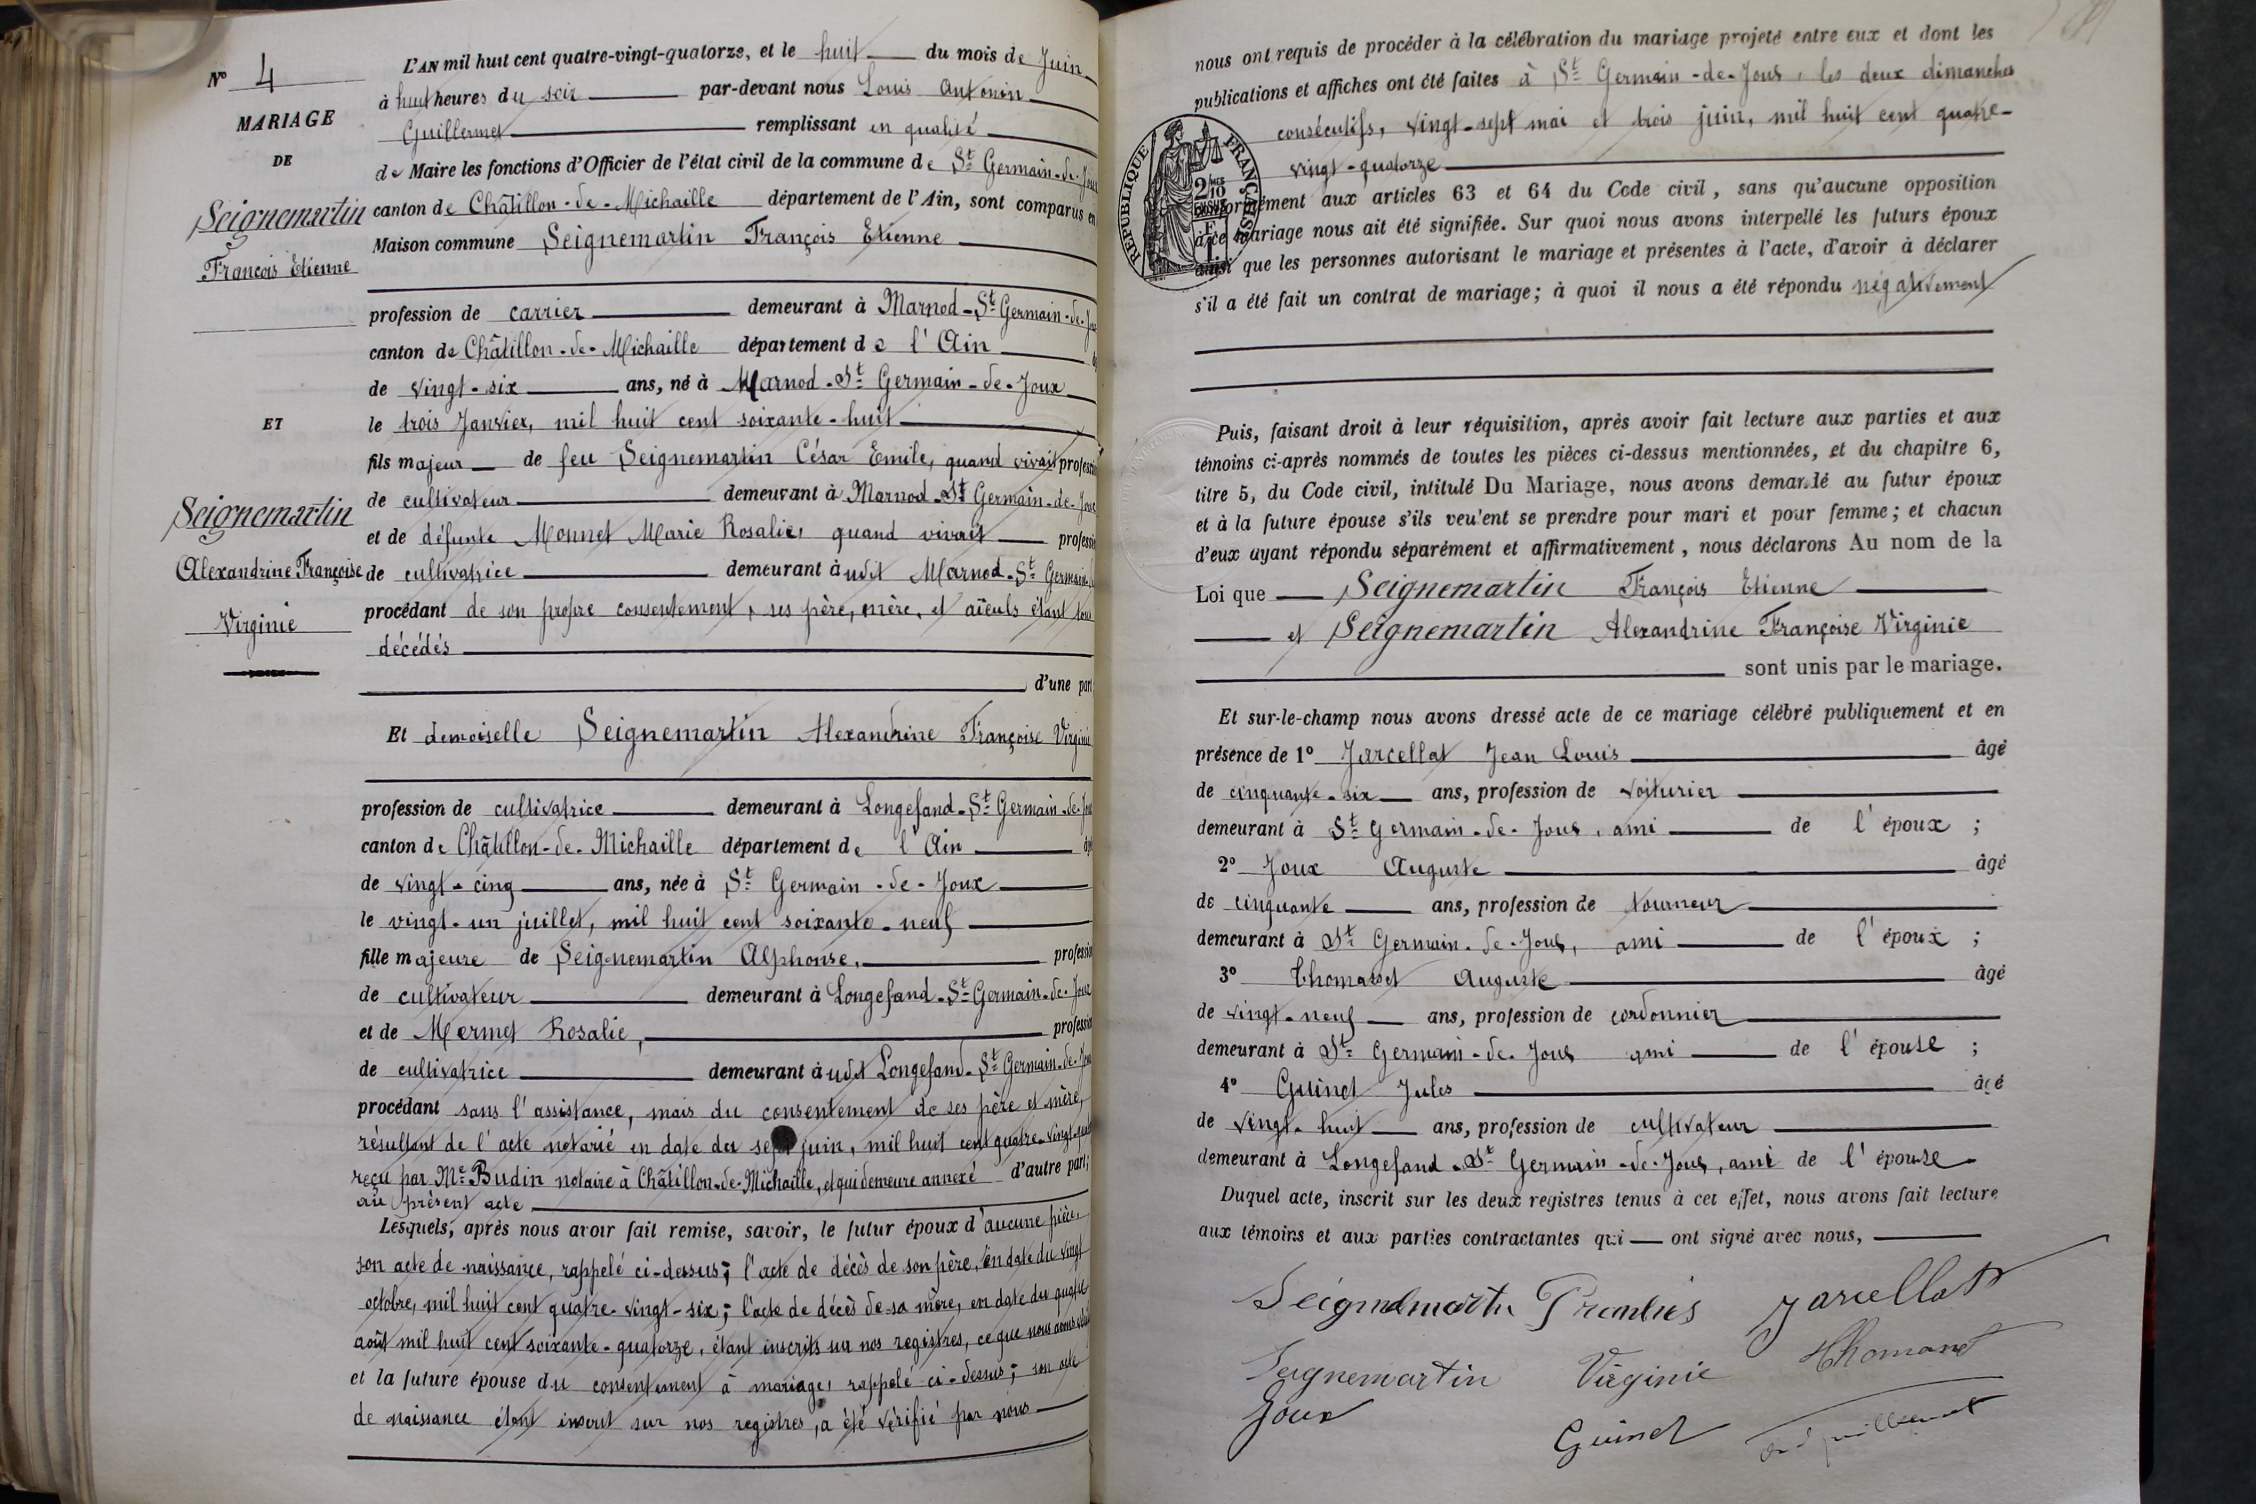 N° 4
MARIAGE
DE
Seignemartin
François Etienne
ET
Seignemartin
Alexandrine Françoise
Virginie
L'AN mil huit cent quatre-vingt-quatorze, et le huit du mois de Juin
à huit heures du soir par-devant nous Louis Antonin
Guillermet remplissant en qualité
de Maire les fonctions d'Officier de l'état civil de la commune de St Germain-de-Joux
canton de Châtillon-de-Michaille département de l'Ain, sont comparus en
Maison commune Seignemartin François Etienne
profession de carrier demeurant à Marnod-St Germain-de-Joux
canton de Châtillon-de-Michaille département de l'Ain
de vingt-six ans, né à Marnod-St Germain-de-Joux
le trois Janvier, mil huit cent soixante-huit
fils majeur de feu Seignemartin César Emile, quand vivait profession
de cultivateur demeurant à Marnod-St Germain-de-Joux
et de défunte Monnet Marie Rosalie, quand vivait profession
de cultivatrice demeurant à udit Marnod-St Germain-de
procédant de son propre consentement, ses père, mère, et aïeuls étant tous
décédés
d'une part
Et demoiselle Seignemartin Alexandrine Françoise Virginie
profession de cultivatrice demeurant à Longefand-St Germain-de-Joux
canton de Châtillon-de-Michaille département de l'Ain
de vingt-cinq ans, née à St Germain-de-Joux
le vingt-un juillet, mil huit cent soixante-neuf
fille majeure de Seignemartin Alphonse, profession
de cultivateur demeurant à Longefand-St Germain-de-Joux
et de Mermet Rosalie, profession
de cultivatrice demeurant à udit Longefand-St Germain-de-Joux
procédant sans l'assistance, mais du consentement de ses père et mère,
résultant de l'acte notarié en date du sept juin, mil huit cent quatre-vingt-quat
reçu par Me Budin notaire à Châtillon-de-Michaille, et qui demeure annexé d'autre part;
au présent acte
Lesquels, après nous avoir fait remise, savoir, le futur époux d'aucune pièce,
son acte de naissance, rappelé ci-dessus; l'acte de décès de son père, en date du vingt
octobre, mil huit cent quatre-vingt-six; l'acte de décès de sa mère, en date du quatre
août mil huit cent soixante-quatorze, étant inscrits sur nos registres, ce que nous avons vérifié
et la future épouse du consentement à mariage, rappelé ci-dessus; son acte
de naissance étant inscrit sur nos registres, a été vérifié par nous
nous ont requis de procéder à la célébration du mariage projeté entre eux et dont les
publications et affiches ont été faites à St Germain-de-Joux, les deux dimanches
consécutifs, vingt-sept mai et trois juin, mil huit cent quatre-
vingt-quatorze
conformément aux articles 63 et 64 du Code civil, sans qu'aucune opposition
à ce mariage nous ait été signifiée. Sur quoi nous avons interpellé les futurs époux
ainsi que les personnes autorisant le mariage et présentes à l'acte, d'avoir à déclarer
s'il a été fait un contrat de mariage; à quoi il nous a été répondu négativement
RÉPUBLIQUE FRANÇAISE
Puis, faisant droit à leur réquisition, après avoir fait lecture aux parties et aux
témoins ci-après nommés de toutes les pièces ci-dessus mentionnées, et du chapitre 6,
titre 5, du Code civil, intitulé Du Mariage, nous avons demandé au futur époux
et à la future épouse s'ils veulent se prendre pour mari et pour femme; et chacun
d'eux ayant répondu séparément et affirmativement, nous déclarons Au nom de la
Loi que Seignemartin François Etienne
et Seignemartin Alexandrine Françoise Virginie
sont unis par le mariage.
Et sur-le-champ nous avons dressé acte de ce mariage célébré publiquement et en
présence de 1° Jarcellat Jean Louis âgé
de cinquante-six ans, profession de voiturier
demeurant à St Germain-de-Joux, ami de l'époux;
2° Joux Auguste âgé
de cinquante ans, profession de tourneur
demeurant à St Germain-de-Joux, ami de l'époux;
3° Thomasset Auguste âgé
de vingt-neuf ans, profession de cordonnier
demeurant à St Germain-de-Joux ami de l'épouse;
4° Guinet Jules âgé
de vingt-huit ans, profession de cultivateur
demeurant à Longefand-St Germain-de-Joux, ami de l'épouse
Duquel acte, inscrit sur les deux registres tenus à cet effet, nous avons fait lecture
aux témoins et aux parties contractantes qui ont signé avec nous,
Seignemartin Jarcellat
Seignemartin Virginie
Joux
Guinet